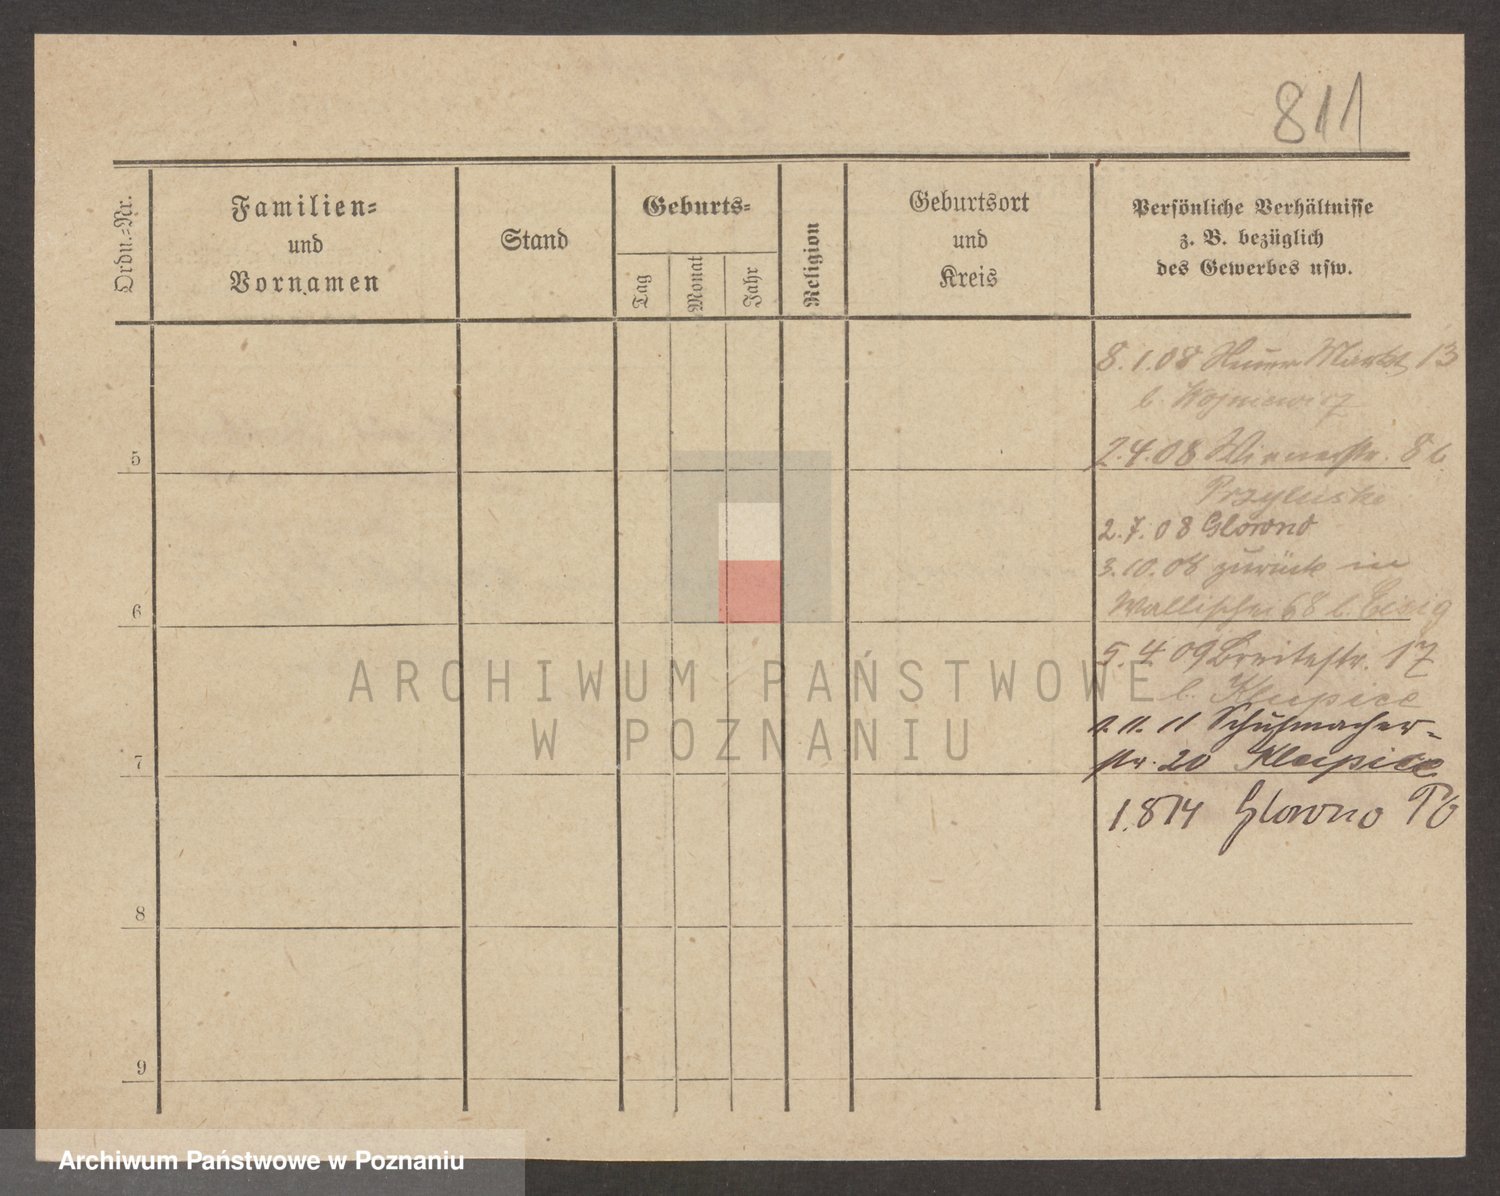 811
Ordn.-Nr.
Familien-
und
Vornamen
Stand
Geburts-
Tag
Monat
Jahr
Religion
Geburtsort
und
Kreis
Persönliche Verhältnisse
z. B. bezüglich
des Gewerbes usw.
8.1.08 Neuer Markt 13
b.
5
2.4.08 Wienerstr. 8 b.
Przyluski
2.7.08 Glowno
3.10.08 zurück in
6
Wallischei 68 b.
5.4.09 Breitestr. 17
b. Klupiec
11.11 Schuhmacher-
7
str. 20 Klupiec
1.8 14 Glowno
8
9
ARCHIWUM PAŃSTWOWE
W POZNANIU
Archiwum Państwowe w Poznaniu